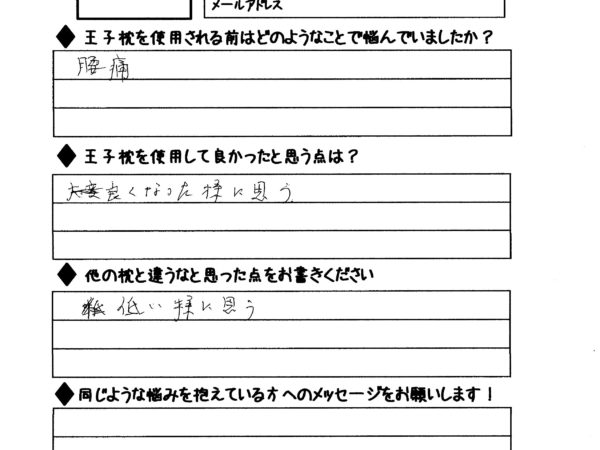 メールアドレス
◆ 王子枕を使用される前はどのようなことで悩んでいましたか？
腰痛
◆ 王子枕を使用して良かったと思う点は？
良くなった様に思う
◆ 他の枕と違うなと思った点をお書きください
低い様に思う
◆ 同じような悩みを抱えている方へのメッセージをお願いします！